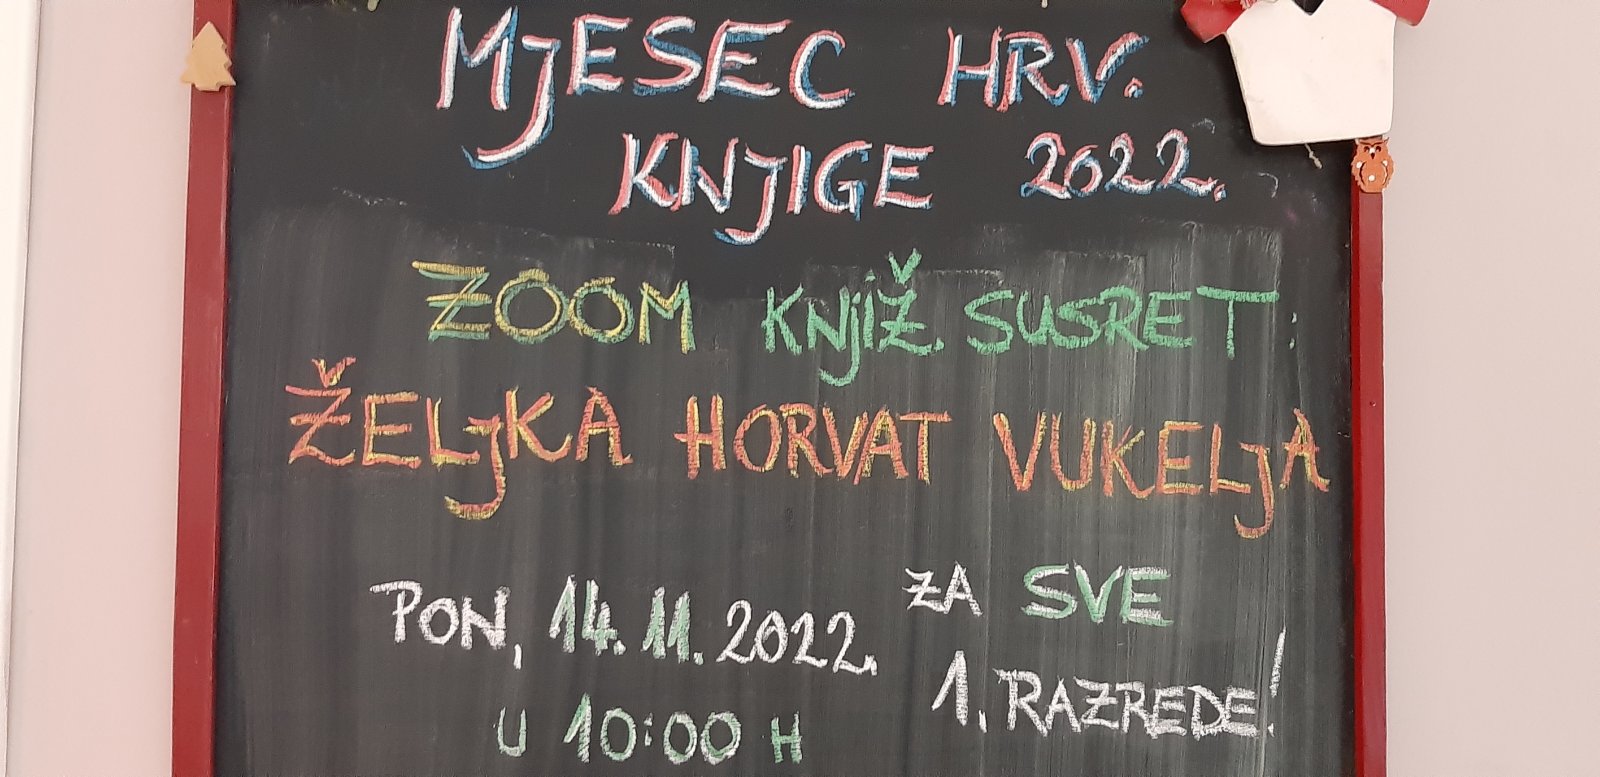 MJESEC HRV.
KNJIGE 2022.
ZOOM KNJIŽ. SUSRET:
ŽELJKA HORVAT VUKELJA
PON, 14.11.2022.
U 10:00 H
ZA SVE
1. RAZREDE!